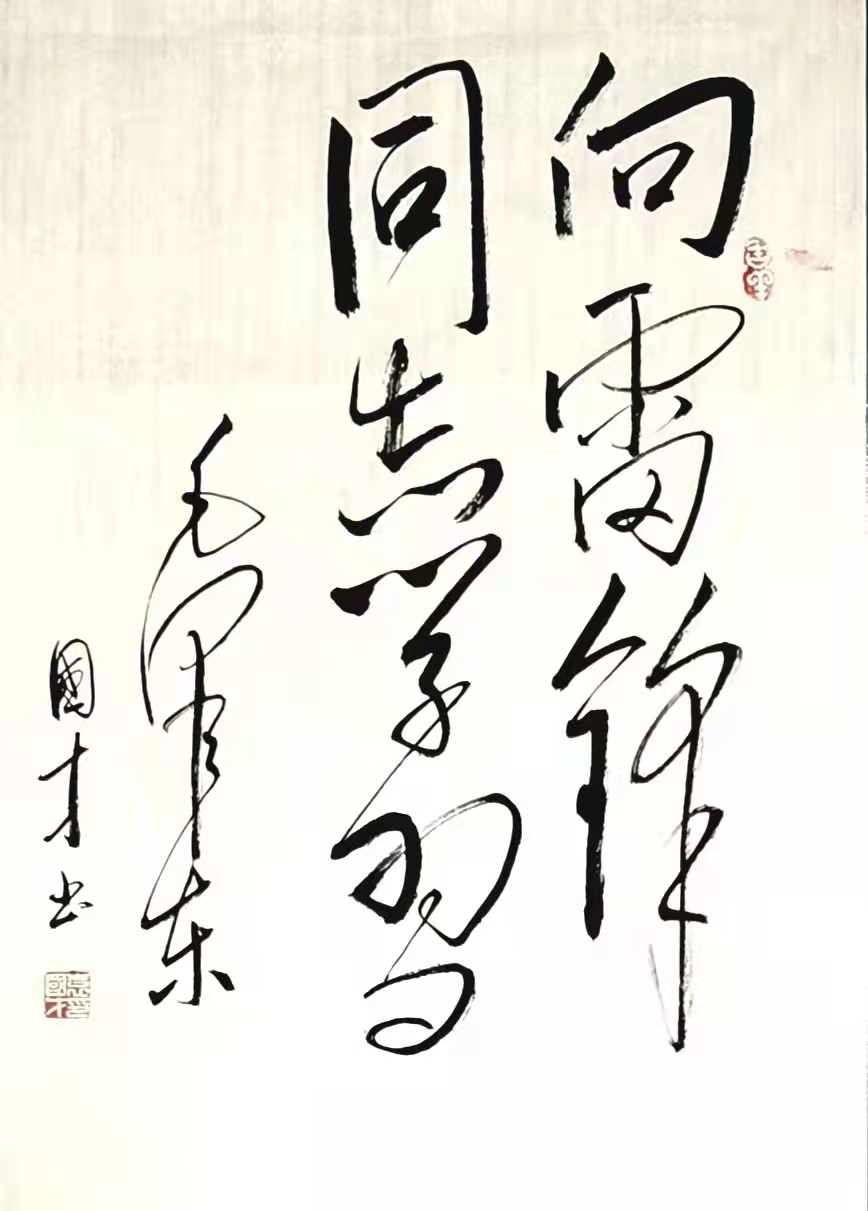 向雷锋
同志学习
毛泽东
國才书